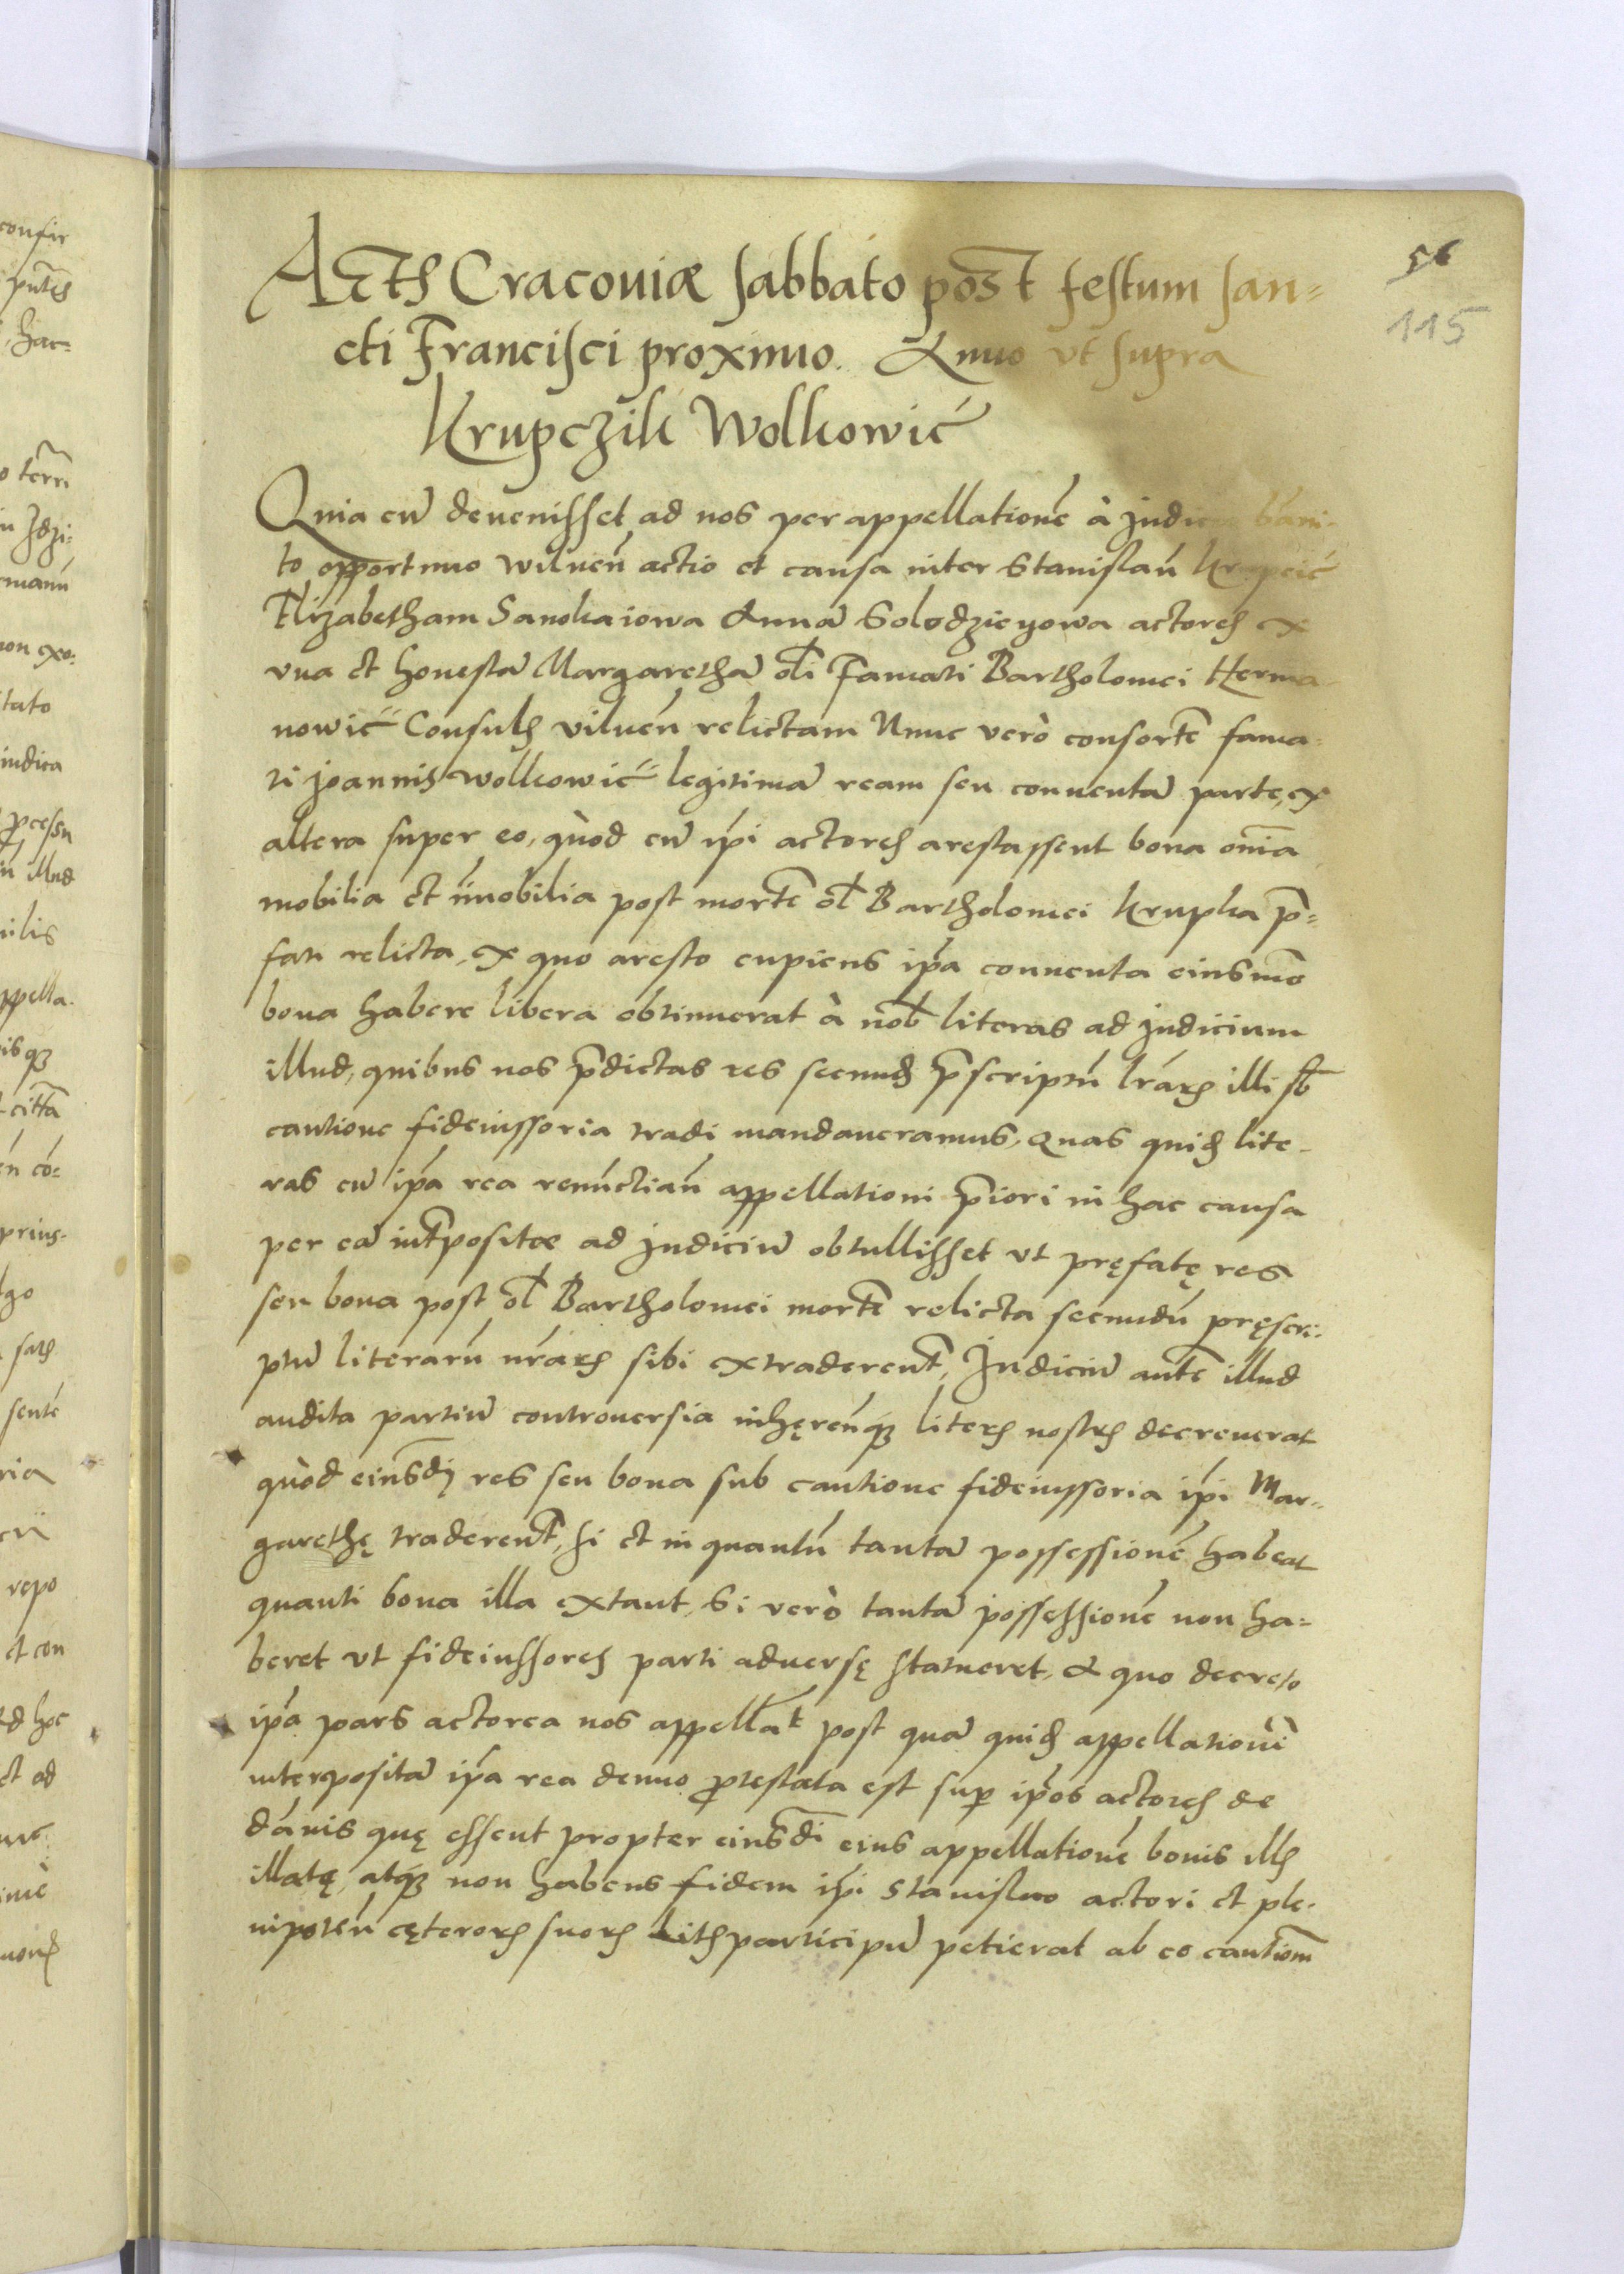 56
115
Actis Cracouiæ sabbato post festum san=
cti Francisci proximo. Anno vt supra
Krupczik Wolkowić
Quia cu̅ deuenisset ad nos per appellatione̅ à Judicio ba̅ni-
to opportuno wilnen̅ actio et causa inter Stanislau̅ Krupcić
Elizabetham Sanokaiowa Anna̅ Solodzieyowa actores ex
vna et honesta̅ Margaretha̅ oli̅ Famati Bartholomei Herma
nowić Consulis vilnen̅ relictam Nunc verò consorte̅ fama-
ti Joannis Wolkowić legitima̅ ream seu conuenta̅ parte, ex
altera super eo, quòd cu̅ ip̅i actores arestassent bona om̅ia
mobilia et im̅obilia post morte̅ ol̅ Bartholomei Krupka p̅=
fati relicta, ex quo aresto cupiens ip̅a conuenta eiusmo̅
bona habere libera obtinuerat à nob̅ literas ad Judicium
illud, quibus nos p̅dictas res secund̅ p̅scriptu̅ l̅rar̅ illi sb̅
cautione fideiussoria tradi mandaueramus, Quas quid̅ lite-
ras cu̅ ip̅a rea renu̅ctian̅ appellationi p̅iori in hac causa
per ea̅ int̅positæ ad Judiciu̅ obtullisset vt pręfatę res
seu bona post ol̅ Bartholomei morte̅ relicta secundu̅ pręscri-
ptu̅ literaru̅ n̅rar̅ sibi extraderent̅, Judiciu̅ aute̅ illud
audita partiu̅ controuersia inhęren̅q3 literis nostris decreuerat
quòd eiusd̅j res seu bona sub cautione fideiussoria ip̅i Mar=
garethę traderent̅, si et in quantu̅ tanta̅ possessione̅ habeat
quanti bona illa extant, Si verò tanta̅ possessione̅ non ha=
beret vt fideiussores parti aduersę statueret, A quo decreto
ip̅a pars actorea nos appellat̅ post qua̅ quid̅ appellatione̅
interposita̅ ip̅a rea denuo p̅testata est sup̅ ip̅os actores de
da̅nis quę essent propter eiusd̅i eius appellatione̅ bonis illis
illatę, atq3 non habens fidem ip̅i Stanislao actori et ple-
nipoten̅ cęteror̅ suor̅ Litisparticipu̅ petierat ab eo caution̅